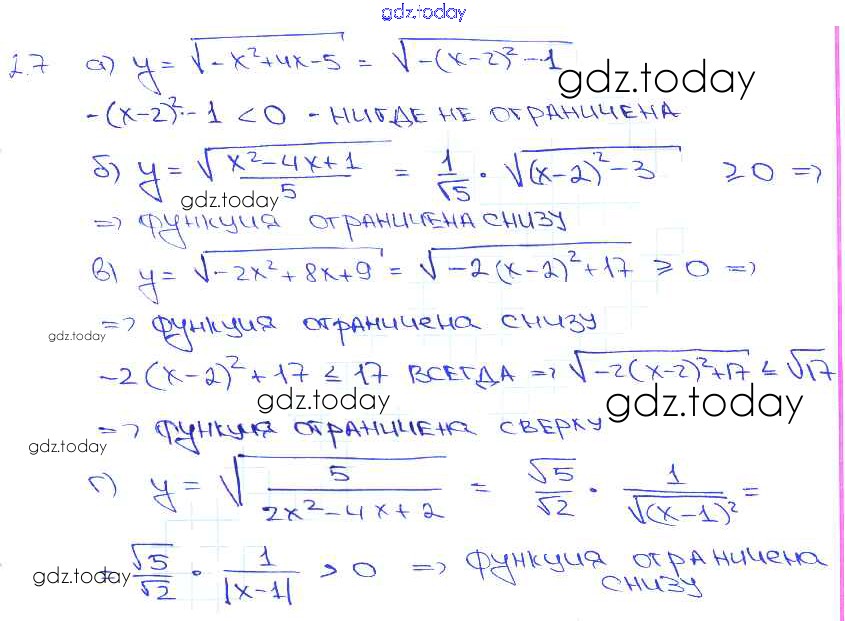 gdz.today
2.7 а) y = √(-x²+4x-5) = √(-(x-2)²-1)
gdz.today
-(x-2)²-1 < 0 - НИГДЕ НЕ ОГРАНИЧЕНА
б) y = √((x²-4x+1)/5) = 1/√5 · √((x-2)²-3) ≥ 0 =>
gdz.today
=> ФУНКЦИЯ ОГРАНИЧЕНА СНИЗУ
в) y = √(-2x²+8x+9) = √(-2(x-2)²+17) ≥ 0 =>
=> ФУНКЦИЯ ОГРАНИЧЕНА СНИЗУ
gdz.today
-2(x-2)²+17 ≤ 17 ВСЕГДА => √(-2(x-2)²+17) ≤ √17
gdz.today
gdz.today
=> ФУНКЦИЯ ОГРАНИЧЕНА СВЕРХУ
gdz.today
г) y = √(5/(2x²-4x+2)) = √5/√2 · 1/√(x-1)² =
= √5/√2 · 1/|x-1| > 0 => ФУНКЦИЯ ОГРАНИЧЕНА
gdz.today
СНИЗУ